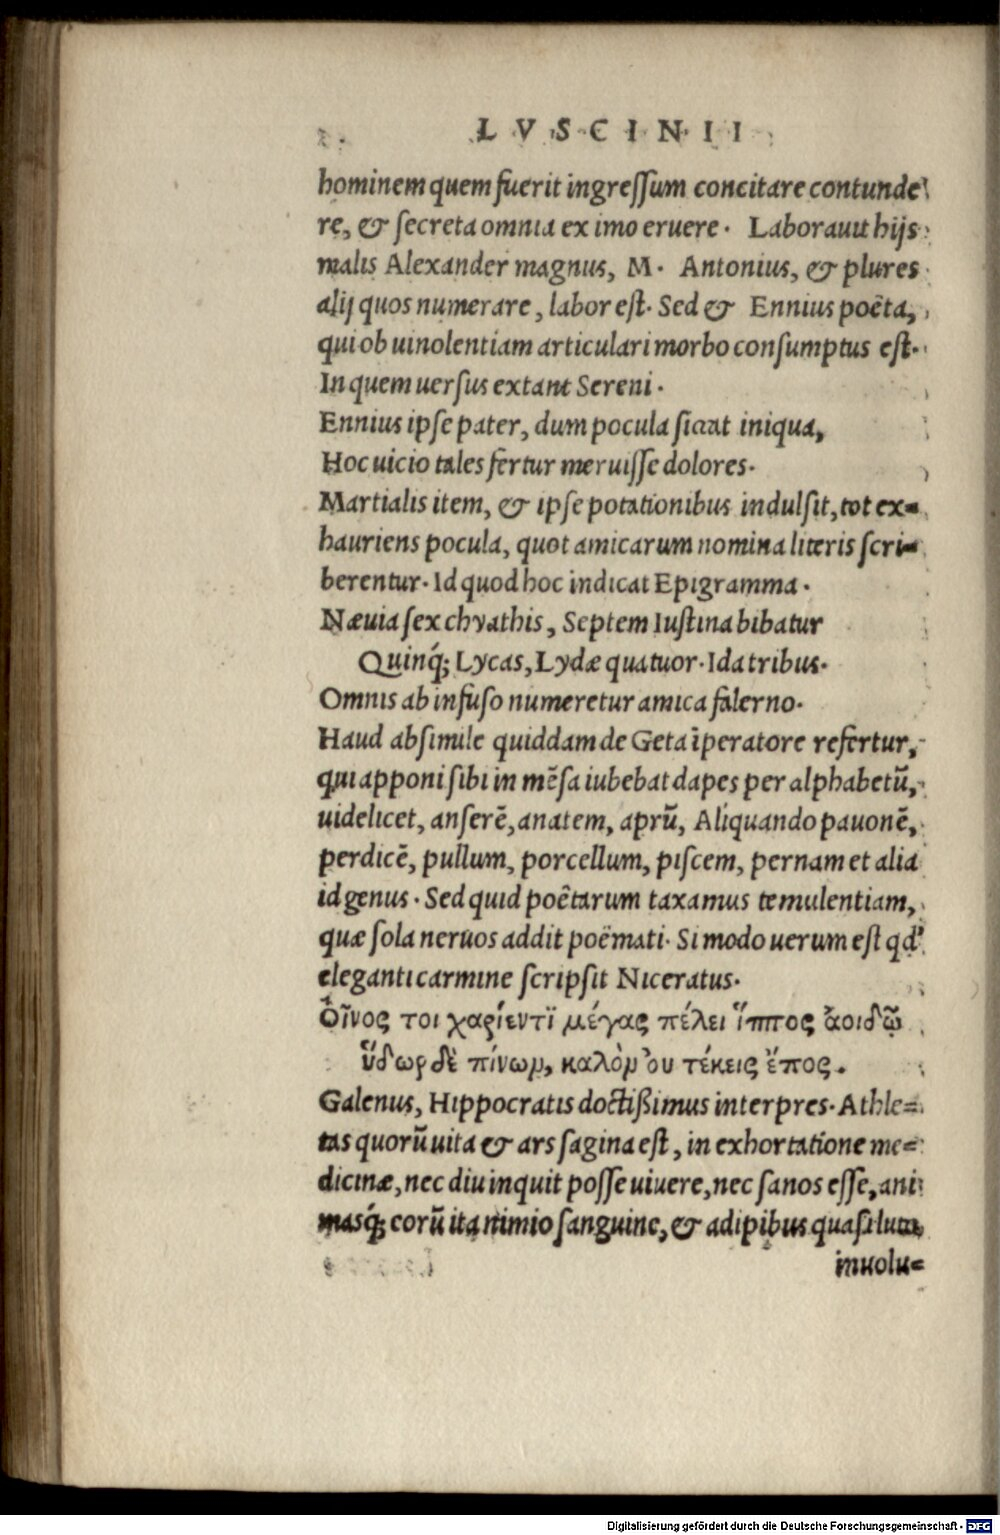 LVSCINII
hominem quem fuerit ingreſſum concitare contunde
re, & ſecreta omnia ex imo eruere. Laborauit hijs
malis Alexander magnus, M. Antonius, & plures
alij quos numerare, labor eſt. Sed & Ennius poëta,
qui ob uinolentiam articulari morbo conſumptus eſt.
In quem uerſus extant Sereni.
Ennius ipſe pater, dum pocula ſiccat iniqua,
Hoc uicio tales fertur meruiſſe dolores.
Martialis item, & ipſe potationibus indulſit, tot ex=
hauriens pocula, quot amicarum nomina literis ſcri=
berentur. Id quod hoc indicat Epigramma.
Næuia ſex chyathis, Septem Iuſtina bibatur
Quinq́; Lycas, Lydæ quatuor. Ida tribus.
Omnis ab infuſo numeretur amica falerno.
Haud abſimile quiddam de Geta īperatore refertur,
qui apponi ſibi in mẽſa iubebat dapes per alphabetũ,
uidelicet, anſerẽ, anatem, aprũ, Aliquando pauonẽ,
perdicẽ, pullum, porcellum, piſcem, pernam et alia
id genus. Sed quid poëtarum taxamus temulentiam,
quæ ſola neruos addit poëmati. Si modo uerum eſt qd'
eleganti carmine ſcripſit Niceratus.
Ὀῖνος τοι χαρίεντϊ μέγας πέλει ἵππος ἀοιδῷ
ὕδωρ δὲ πίνωμ, καλὸμ ὀυ τέκεις ἔπος.
Galenus, Hippocratis doctißimus interpres. Athle=
tas quorũ uita & ars ſagina eſt, in exhortatione me=
dicinæ, nec diu inquit poſſe uiuere, nec ſanos eſſe, ani
masq́; eorũ ita nimio ſanguine, & adipibus quaſi luto
inuolu=
Digitalisierung gefördert durch die Deutsche Forschungsgemeinschaft - DFG